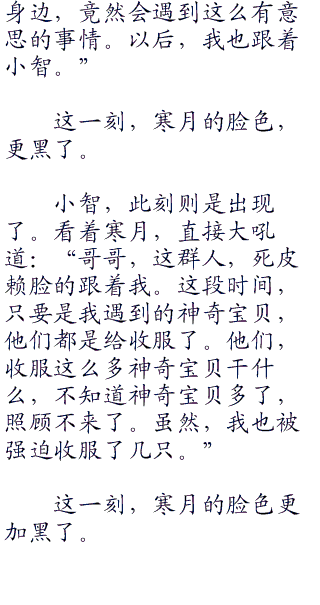 身边，竟然会遇到这么有意
思的事情。以后，我也跟着
小智。”
这一刻，寒月的脸色，
更黑了。
小智，此刻则是出现
了。看着寒月，直接大吼
道：“哥哥，这群人，死皮
赖脸的跟着我。这段时间，
只要是我遇到的神奇宝贝，
他们都是给收服了。他们，
收服这么多神奇宝贝干什
么，不知道神奇宝贝多了，
照顾不来了。虽然，我也被
强迫收服了几只。”
这一刻，寒月的脸色更
加黑了。